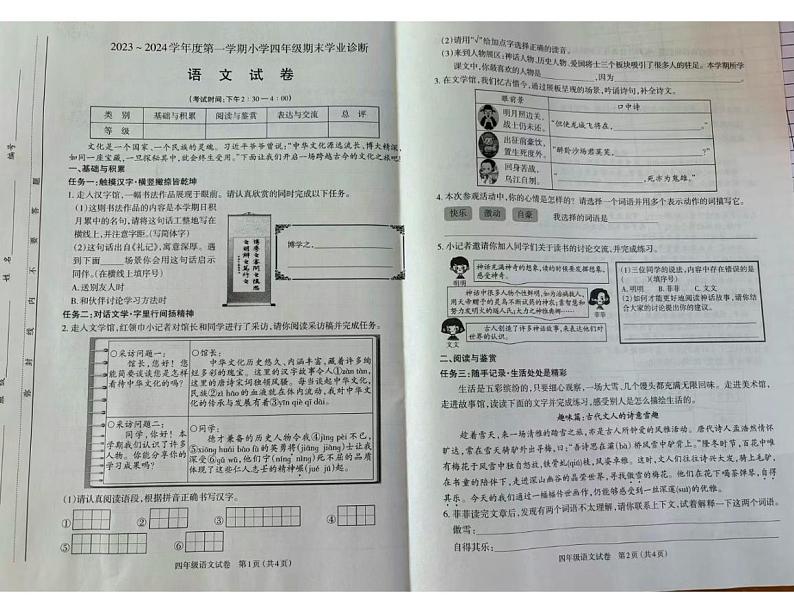 2023～2024学年度第一学期小学四年级期末学业诊断
语 文 试 卷
(考试时间:下午2：30—4：00)
类 别 基础与积累 阅读与鉴赏 表达与交流 总 评
等 级
文化是一个国家、一个民族的灵魂。习近平爷爷说:“中华文化源远流长,博大精深,
如同一座宝藏,一旦探秘其中,就会终生受用。”下面让我们开启一场跨越古今的文化之旅吧!
一、基础与积累
任务一:触摸汉字·横竖撇捺皆乾坤
1. 走入汉字馆,一幅书法作品展现于眼前。请认真欣赏的同时完成以下任务。
(1)这则书法作品的内容是本学期日积
月累中的名句,请将这句话工整地写在
横线上,并注意字距。(写简体字)
(2)这句话出自《礼记》,寓意深厚。遇
到下面____场景你会用这句话启示
同伴。(在横线上填序号)
A.送别友人时
B.和伙伴讨论学习方法时
博学之,
任务二:对话文学·字里行间扬精神
2. 走入文学馆,红领巾小记者对馆长和同学进行了采访,请你阅读采访稿并完成任务。
○采访问题一:
馆长,您好！您
能简要谈谈您是怎么
看待中华文化的吗?
○馆长:
中华文化历史悠久、内涵丰富,蕴含着许多绚
丽多彩的瑰宝。这里的汉字故事令人①zàn tàn,
这里的唐诗宋词独领风骚。每当谈起中华文化,
民族②zì xìn的血液就在体内流动,我对中华文
化的传承与发展有着③yīn qiè qī dài.
○采访问题二:
同学,你好！本
学期我们认识了许多
人物,能分享你的学
习成果吗?
○同学:
德才兼备的历史人物令我④jīng pèi不已,
⑤xiōng huái báo fù的英勇将(jiāng jiàng)士让我
⑥shēn shòu gǔ wǔ,他们宁(níng nìng)死不屈的品质
体现了这些仁人志士的精神崛(jué jū)起。
(1)请认真阅读语段,根据拼音正确书写汉字。
① ② ③ ④
⑤ ⑥
四年级语文试卷 第1页(共4页)
(2)请用“√”给加点字选择正确的读音。
(3)来到人物展区:神话人物、历史人物、爱国将士三个板块吸引了很多人的驻足。本学期所学
课文中,你最喜欢的人物是____,因为____。
3. 在文学馆,我们忆古惜今,通过展板呈现的场景,吟诵诗句,补全诗文。
眼前景 口中诗
明月照边关,
战士仍未还。
“但使龙城飞将在,____。”
出征前豪饮,
置生死度外。
“醉卧沙场君莫笑,____?”
回身苦战,
乌江自刎。
“____,死亦为鬼雄。”
4. 本次参观活动中,你的心情是怎样的？请选择一个词语并用多个表示动作的词描写它。
快乐 激动 自豪 我选择的词语是____
5. 小记者邀请你加入同学们关于读书的讨论交流,并完成练习。
神话充满神奇的想象,读的时候要发挥想象,
感受神奇。
明明
神话中很多人物个性鲜明,如为治病救人,
用天帝赐予的灵鸟不断试药的神农;善思勤和
努力发明火的燧人氏;火力之神维弗娜……
菲菲
古人创造了许多神话故事,来表达他们对
世界的认识。
文文
(1)三位同学的说法,内容中存在错误的是
( )(填序号)
A. 明明 B. 菲菲 C. 文文
(2)如何才能更好地阅读神话故事,请你结
合大家的讨论提出你的建议。
二、阅读与鉴赏
任务三:随手记录·生活处处是精彩
生活是五彩缤纷的,只要细心观察,一场大雪、几个馒头都充满无限回味。走进美术馆,
走进故事馆,读读下面的文字并完成练习,感受别人是怎么描绘生活的。
趣味篇:古代文人的诗意雪趣
趁着雪天,来一场清雅的踏雪之旅,亦是古人所钟爱的风雅活动。唐代诗人孟浩然情怀
旷达,常在雪天骑驴外出寻梅,曰:“吾诗思在灞(bà)桥风雪中驴背上。”隆冬时节,百花中唯
有梅花于风雪中独自怒放,铁骨虬(qiú)枝,风姿卓雅。这时,文人们往往诗兴大发,果敢地
在书童的陪伴下,走进深山幽谷的晶莹世界,寻找傲雪的梅花。他们在花下喝茶弹琴,自得
其乐。今天的我们通过一幅幅传世画作,仍能够感受到一丝深邃(suì)的优雅。
6. 菲菲读完文章后,发现有两个词语不太理解,请你联系上下文,试着解释一下这两个词语。
傲雪:
自得其乐:
四年级语文试卷 第2页(共4页)